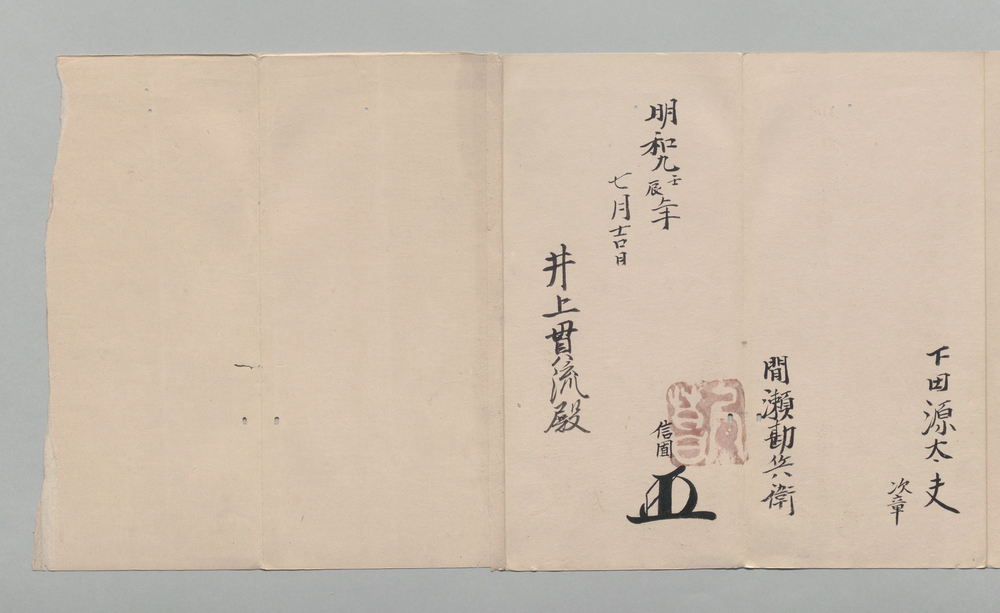 下田源太夫
次章
間瀬勘兵衛
信圊
明和九壬辰年
七月吉日
井上貫流殿